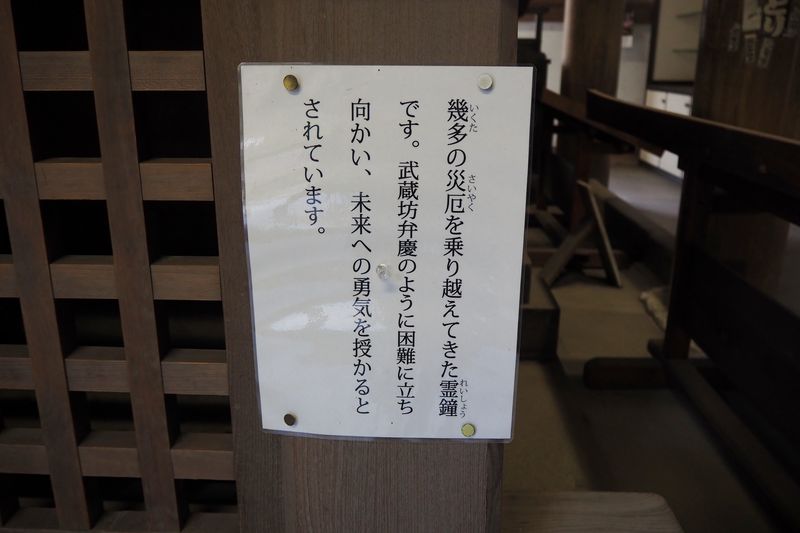 幾多の災厄を乗り越えてきた霊鐘
いくた
さいやく
れいしょう
です。武蔵坊弁慶のように困難に立ち
向かい、未来への勇気を授かると
されています。